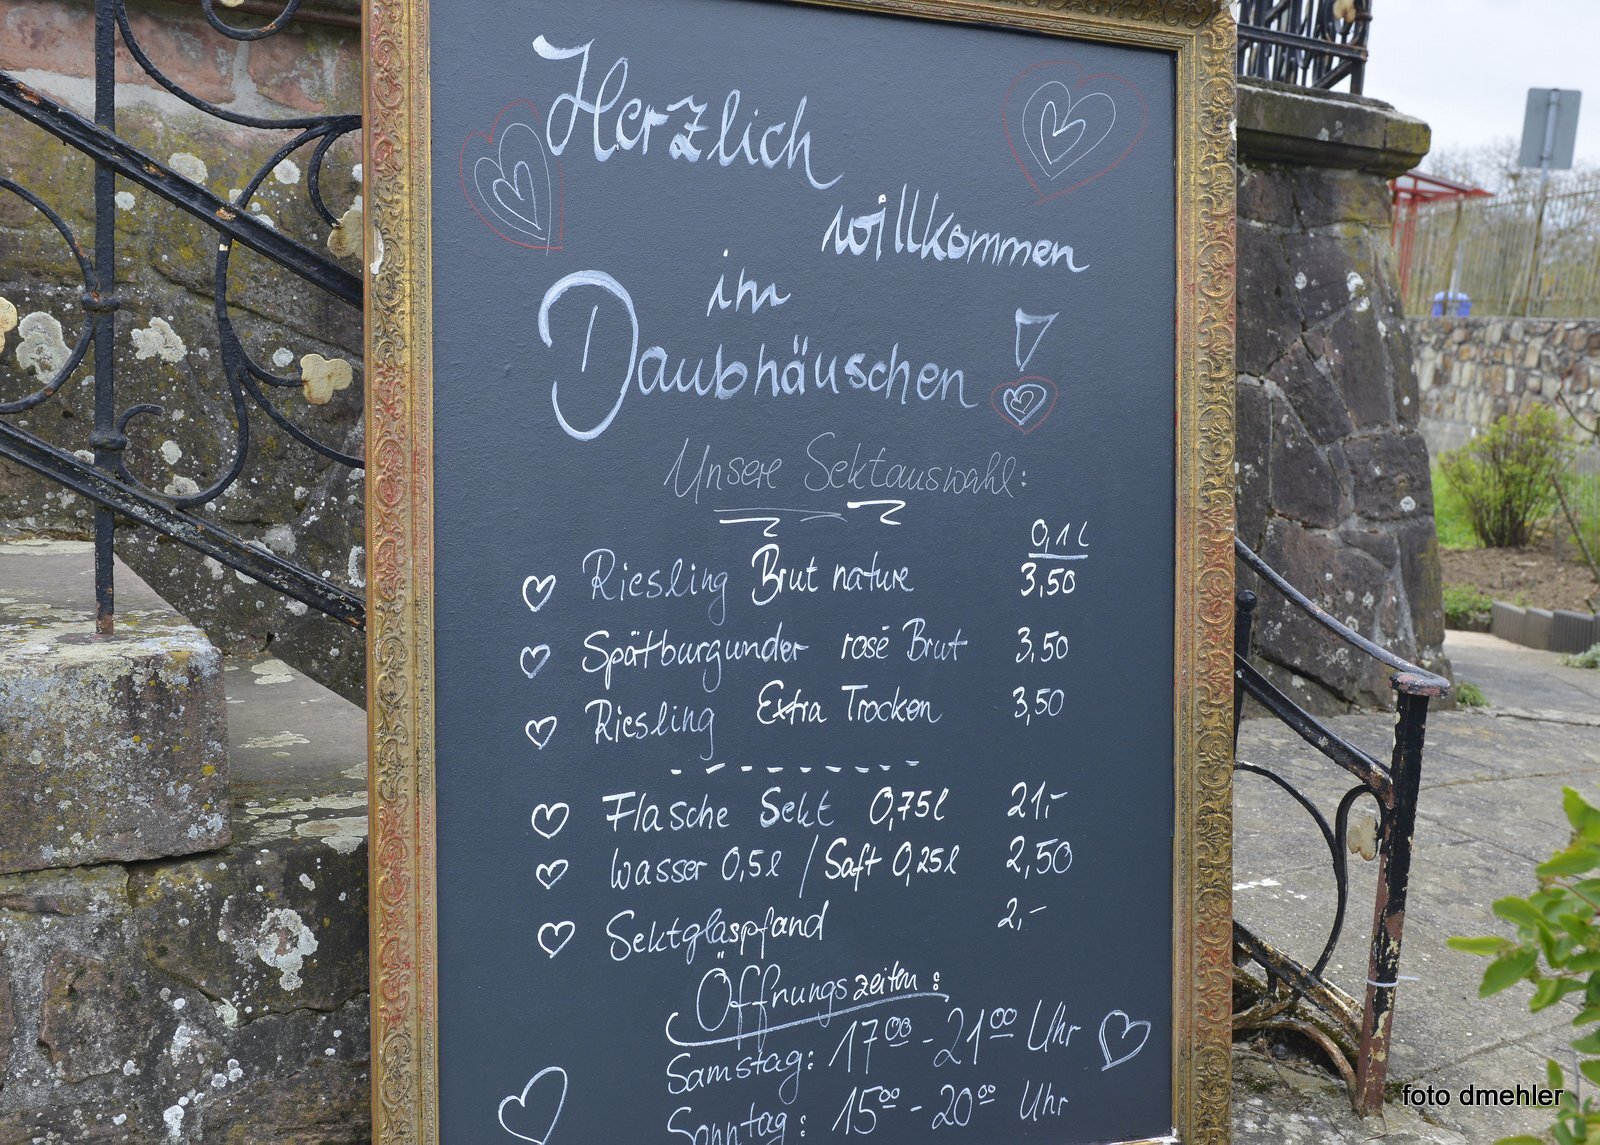 Herzlich
willkommen
im
Daubhäuschen!
Unsere Sektauswahl:
0,1 l
Riesling Brut nature 3,50
Spätburgunder rosé Brut 3,50
Riesling Extra Trocken 3,50
Flasche Sekt 0,75l 21,-
Wasser 0,5l / Saft 0,25l 2,50
Sektglaspfand 2,-
Öffnungszeiten:
Samstag: 17°° - 21°° Uhr
Sonntag: 15°° - 20°° Uhr
foto dmehler